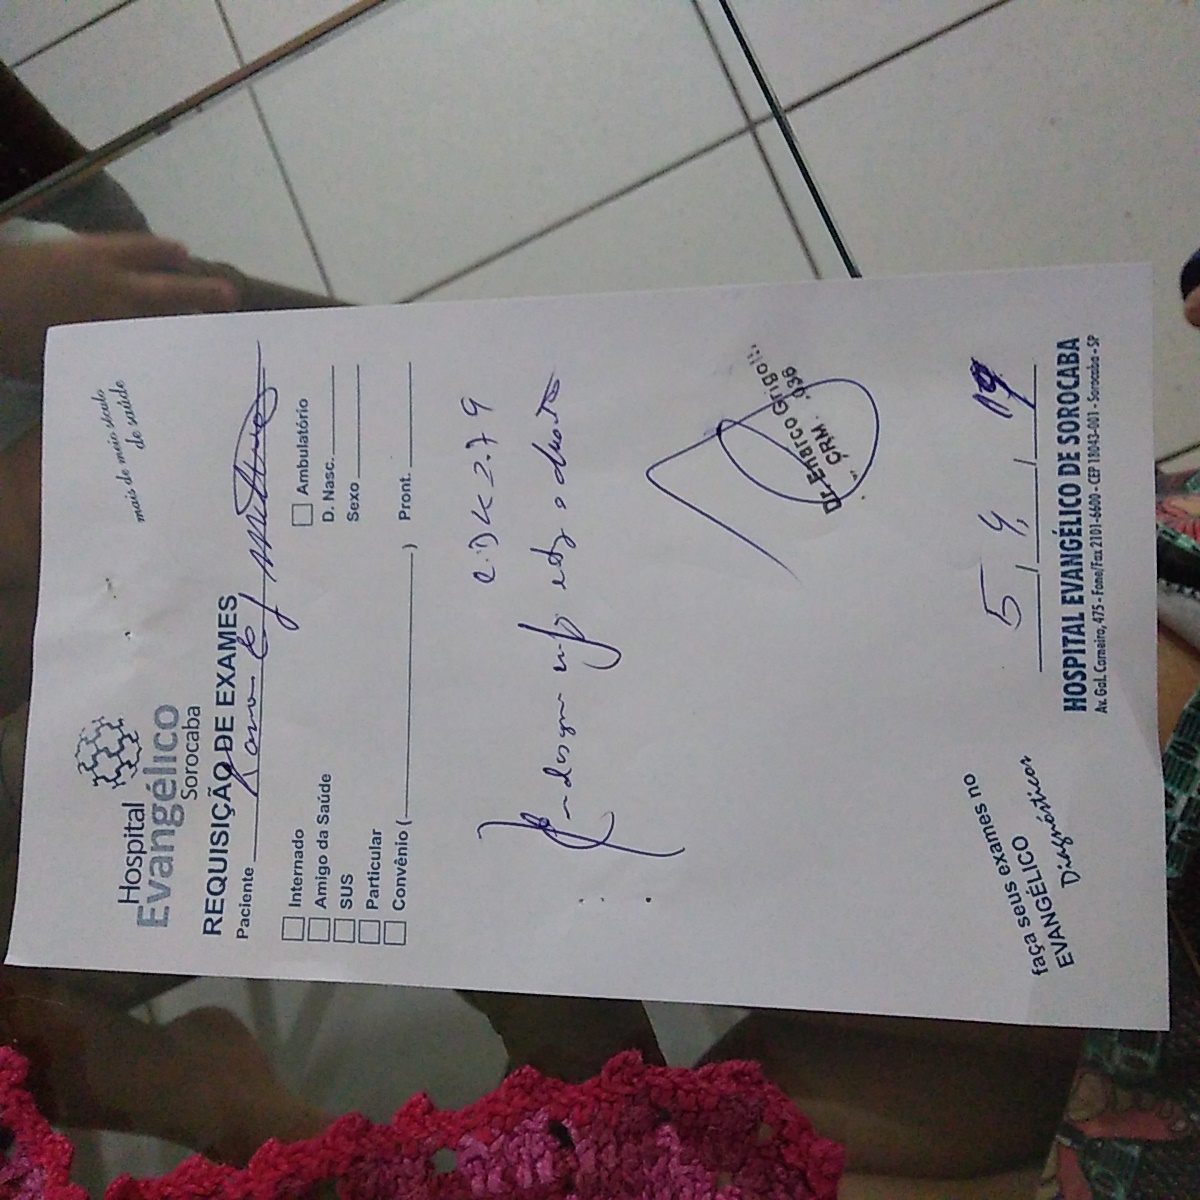 Hospital
Evangélico
Sorocaba
mais de meio século
de saúde
REQUISIÇÃO DE EXAMES
Paciente
Internado
Amigo da Saúde
SUS
Particular
Convênio (
)
Ambulatório
D. Nasc.
Sexo
Pront.
Dr. Enarco Grigol
CRM 036
faça seus exames no
EVANGÉLICO
Diagnósticos
5, 4, 19
HOSPITAL EVANGÉLICO DE SOROCABA
Av. Gal. Carneiro, 475 - Fone/Fax 2101-6600 - CEP 18043-001 - Sorocaba - SP